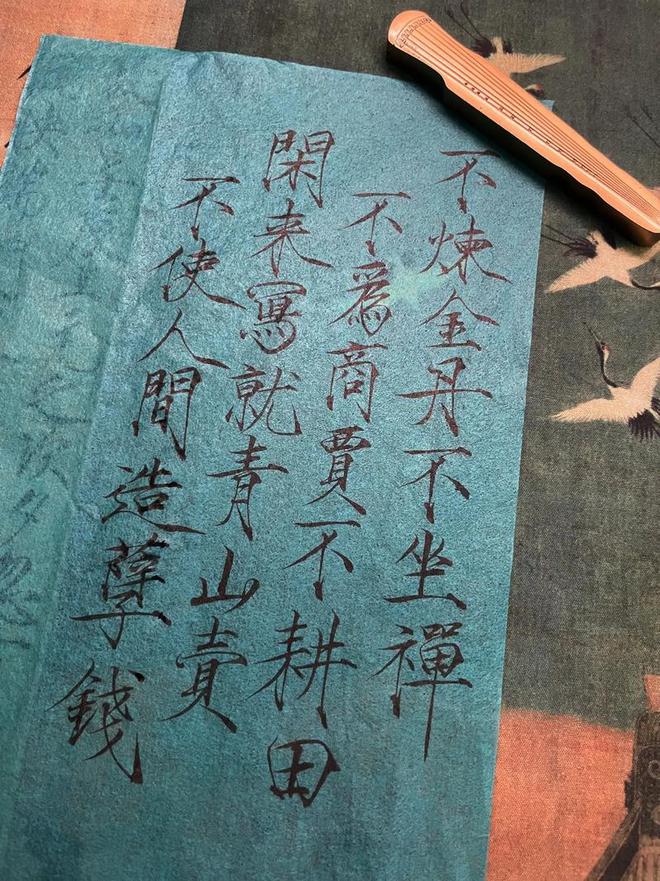 不煉金丹不坐禪
不爲商賈不耕田
閑来寫就青山賣
不使人間造孽錢